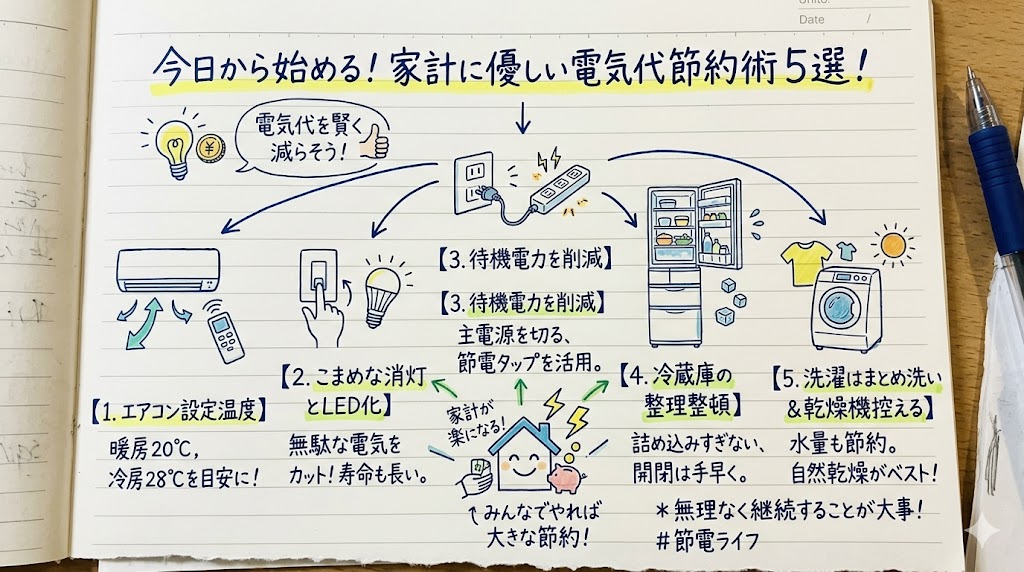 Date /
今日から始める！家計に優しい電気代節約術5選！
電気代を賢く
減らそう！
¥
【1. エアコン設定温度】
暖房20℃,
冷房28℃を目安に！
【2. こまめな消灯
とLED化】
無駄な電気を
カット！寿命も長い。
【3. 待機電力を削減】
【3. 待機電力を削減】
主電源を切る、
節電タップを活用。
【4. 冷蔵庫の
整理整頓】
詰め込みすぎない、
開閉は手早く。
【5. 洗濯はまとめ洗い
＆乾燥機控える】
水量も節約。
自然乾燥がベスト！
家計が
楽になる！
↑みんなでやれば
大きな節約！
＊無理なく継続することが大事！
＃節電ライフ